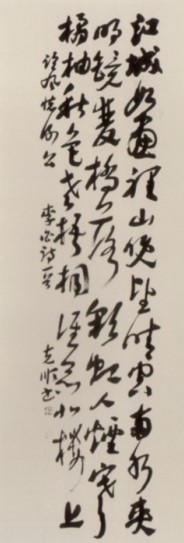 江城如畫裡山晚望晴空兩水夾
明鏡雙橋落彩虹人煙寒
橘柚秋色老梧桐誰念北樓上
臨風懷謝公 李白詩一首 克順書